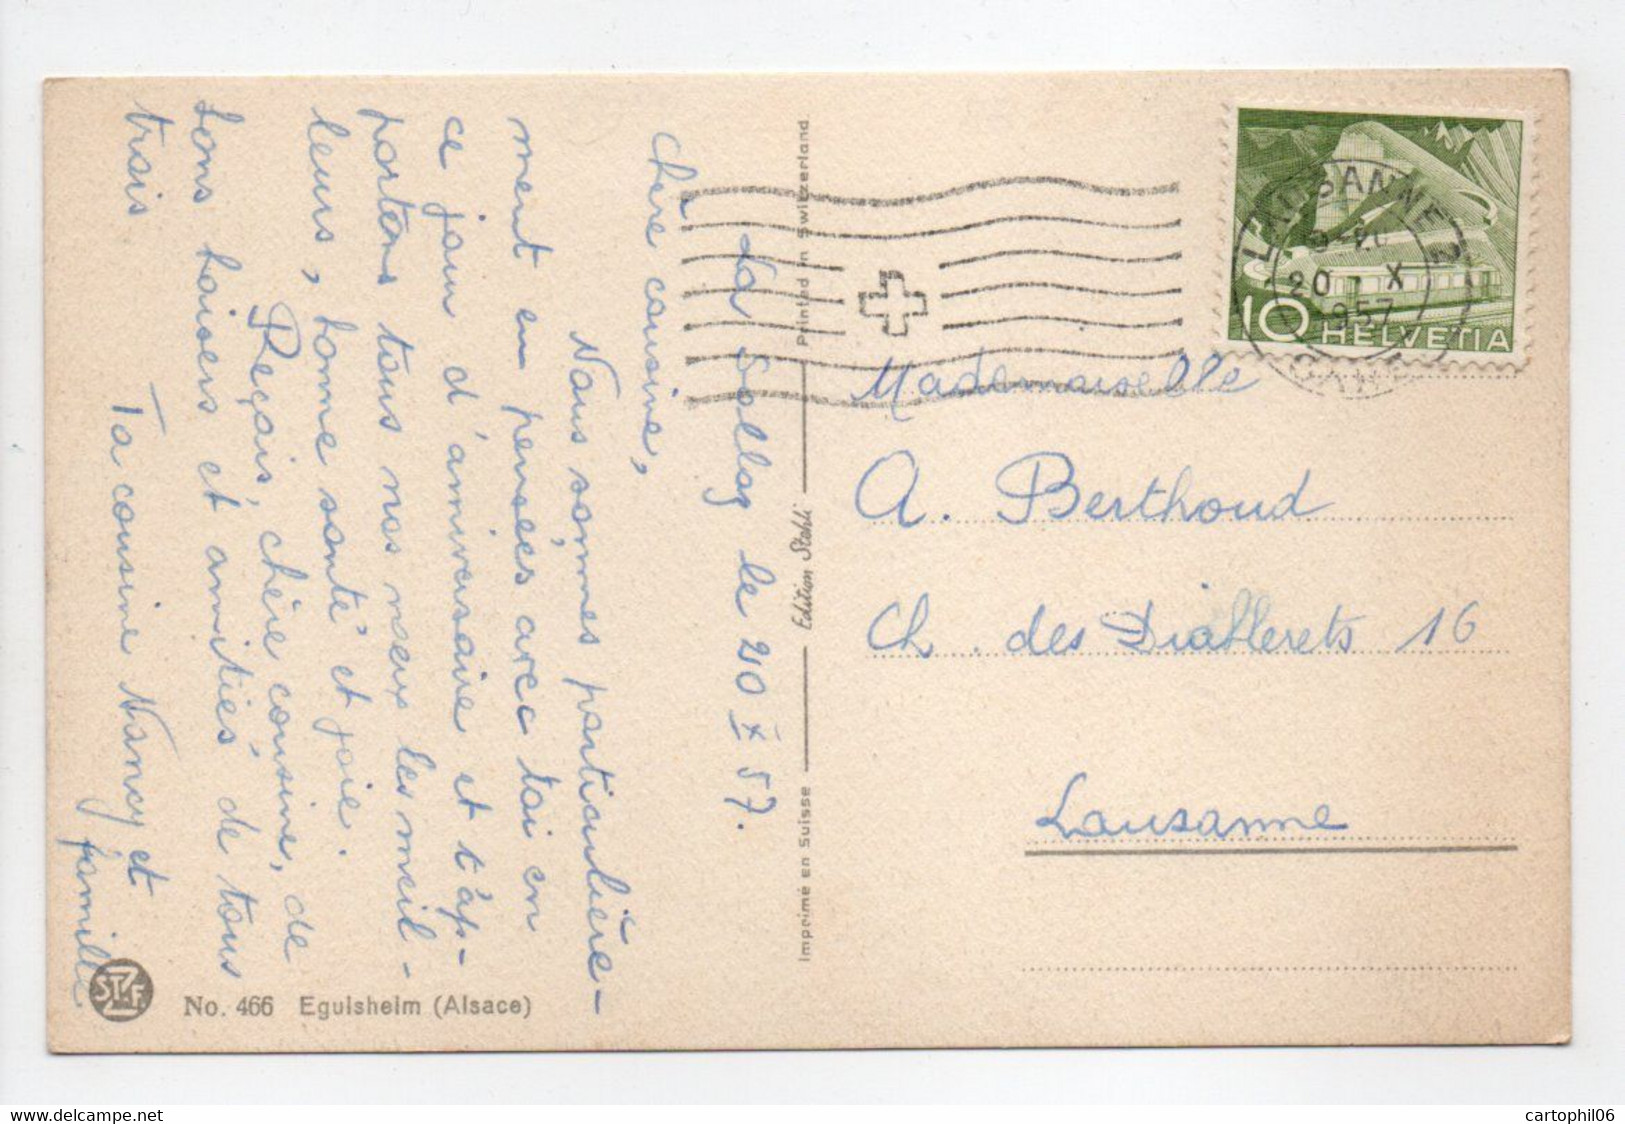 La Sallaz le 20 X 57.
Chère cousine,
Nous sommes particulière-
ment en pensées avec toi en
ce jour d'anniversaire et t'ap-
portons tous nos vœux les meil-
leurs, bonne santé et joie.
Reçois, chère cousine, de
bons baisers et amitiés de tous
trois
Ta cousine Nancy et
famille
No. 466 Eguisheim (Alsace)
Imprimé en Suisse
Edition Stehli
Printed in Switzerland
HELVETIA
10
LAUSANNE 2
20 X
1957
Mademoiselle
A. Berthoud
Ch. des Diablerets 16
Lausanne
cartophil06